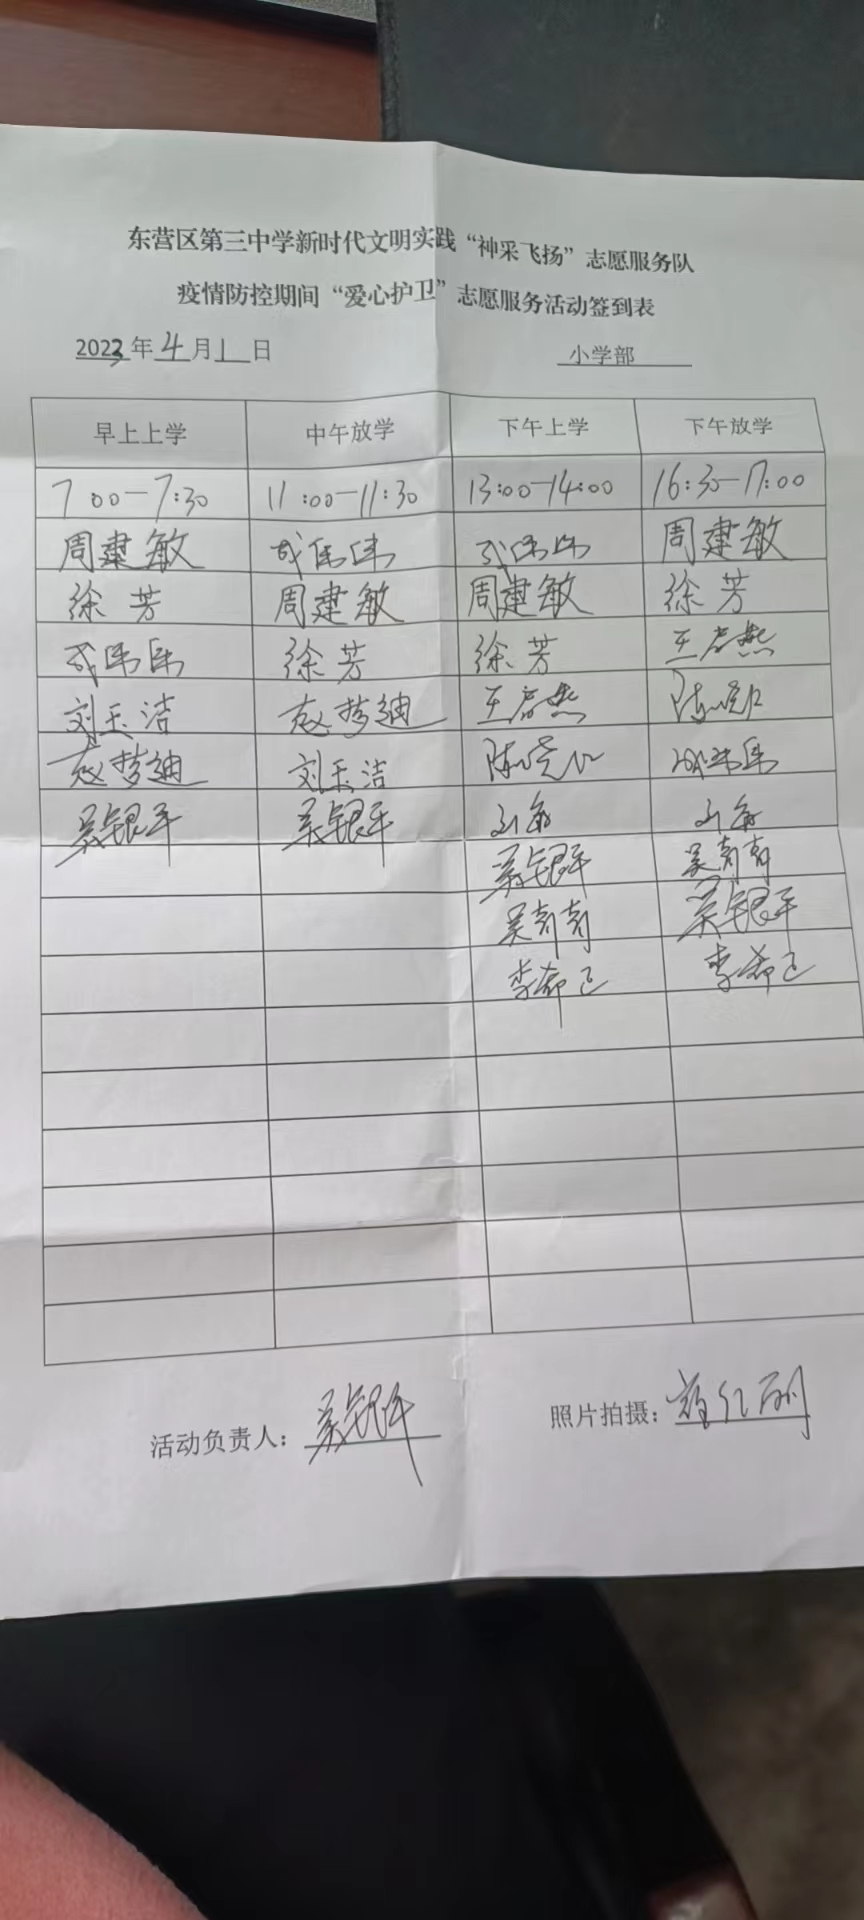 东营区第三中学新时代文明实践“神采飞扬”志愿服务队
疫情防控期间“爱心护卫”志愿服务活动签到表
2023年4月1日 小学部
早上上学 中午放学 下午上学 下午放学
7:00—7:30 11:00—11:30 13:00—14:00 16:30—17:00
周建敏 成伟伟 成伟伟 周建敏
徐芳 周建敏 周建敏 徐芳
成伟伟 徐芳 徐芳
刘玉洁 赵梦迪
赵梦迪 刘玉洁 成伟伟
吴银平 吴银平
吴银平
吴银平
活动负责人：吴银平 照片拍摄：